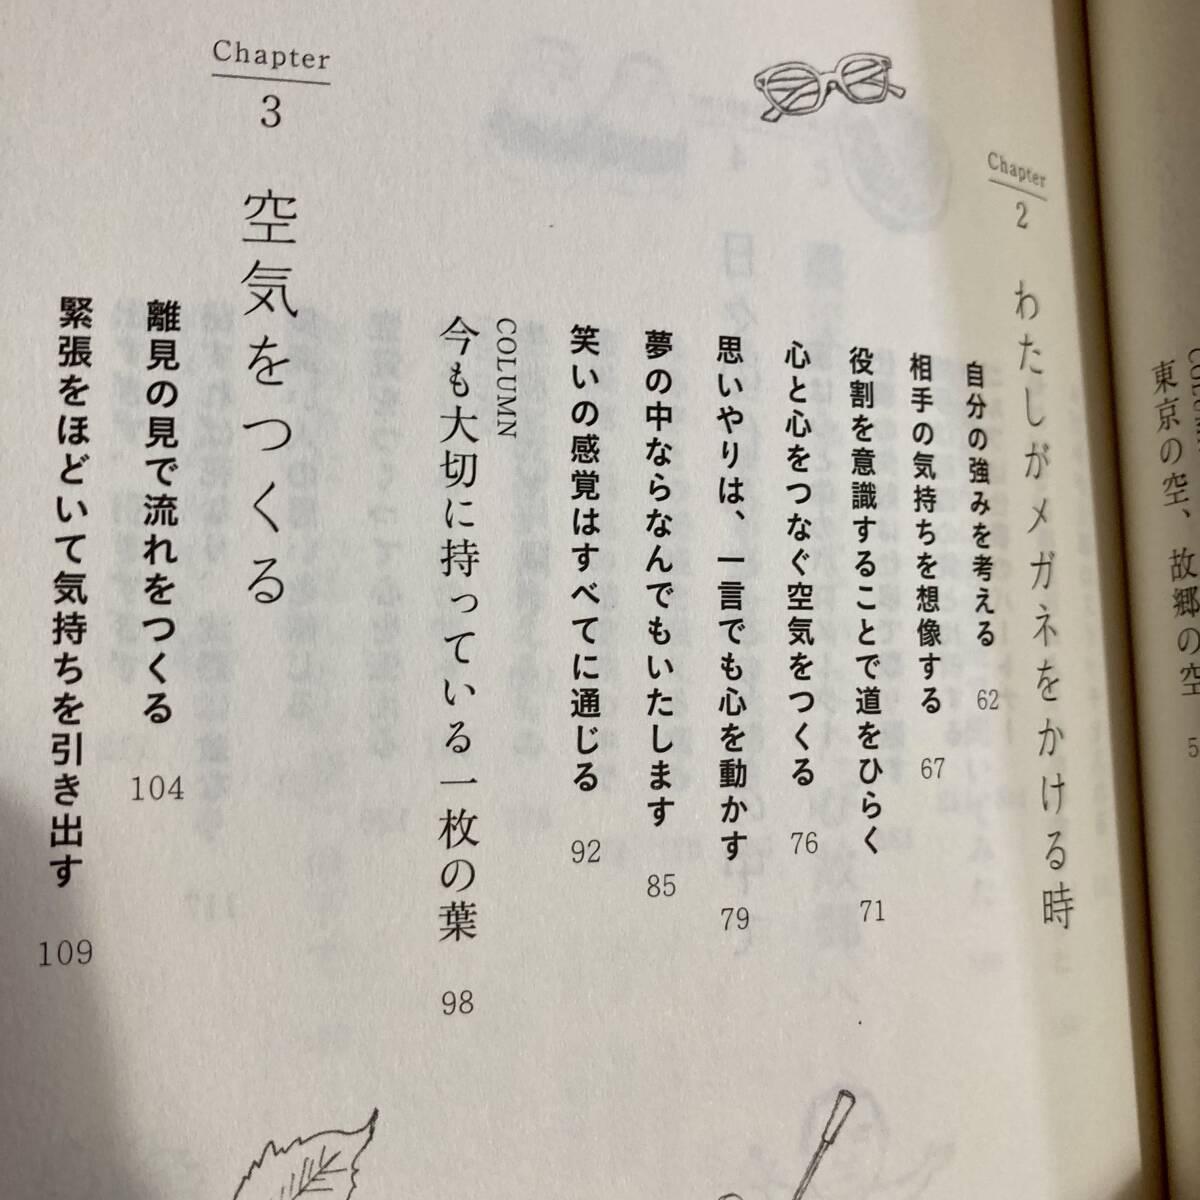 東京の空、故郷の空
Chapter
2
わたしがメガネをかける時
自分の強みを考える
62
相手の気持ちを想像する
67
役割を意識することで道をひらく
71
心と心をつなぐ空気をつくる
76
思いやりは、一言でも心を動かす
79
夢の中ならなんでもいたします
85
笑いの感覚はすべてに通じる
92
COLUMN
今も大切に持っている一枚の葉
98
Chapter
3
空気をつくる
離見の見で流れをつくる
104
緊張をほどいて気持ちを引き出す
109